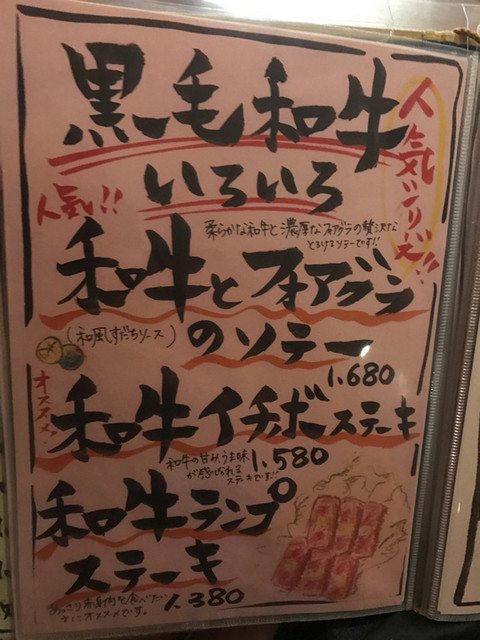 黒毛和牛
いろいろ
人気いちばん!!
人気!!
柔らかな和牛と濃厚なフォアグラの贅沢な
とろけるソテーです!!
和牛とフォアグラ
のソテー
(和風すだちソース)
1.680
オススメ!
和牛イチボステーキ
和牛の甘み、うま味
が感じられる
ステーキです!!
1.580
和牛ランプ
ステーキ
あっさり赤身肉を食べたい
方にオススメです。
1.380